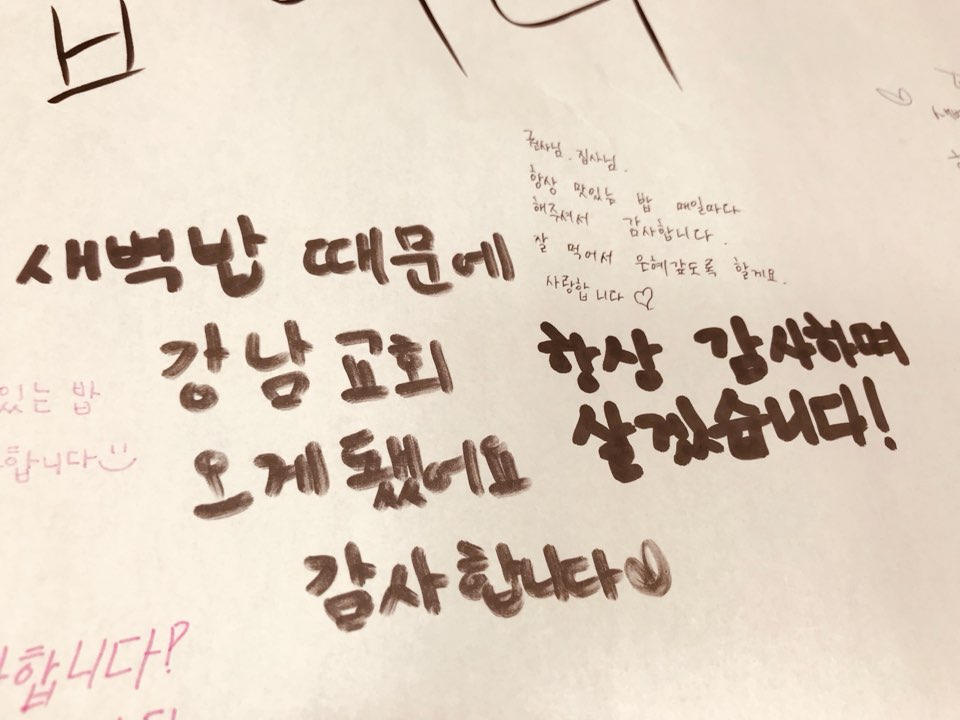 권사님. 집사님.
항상 맛있는 밥 매일마다
해주셔서 감사합니다.
잘 먹어서 은혜갚도록 할게요.
사랑합니다 ♡
새벽밥 때문에
강남교회
오게 됐어요
감사합니다♡
항상 감사하며
살겠습니다!
있는 밥
합니다
합니다?